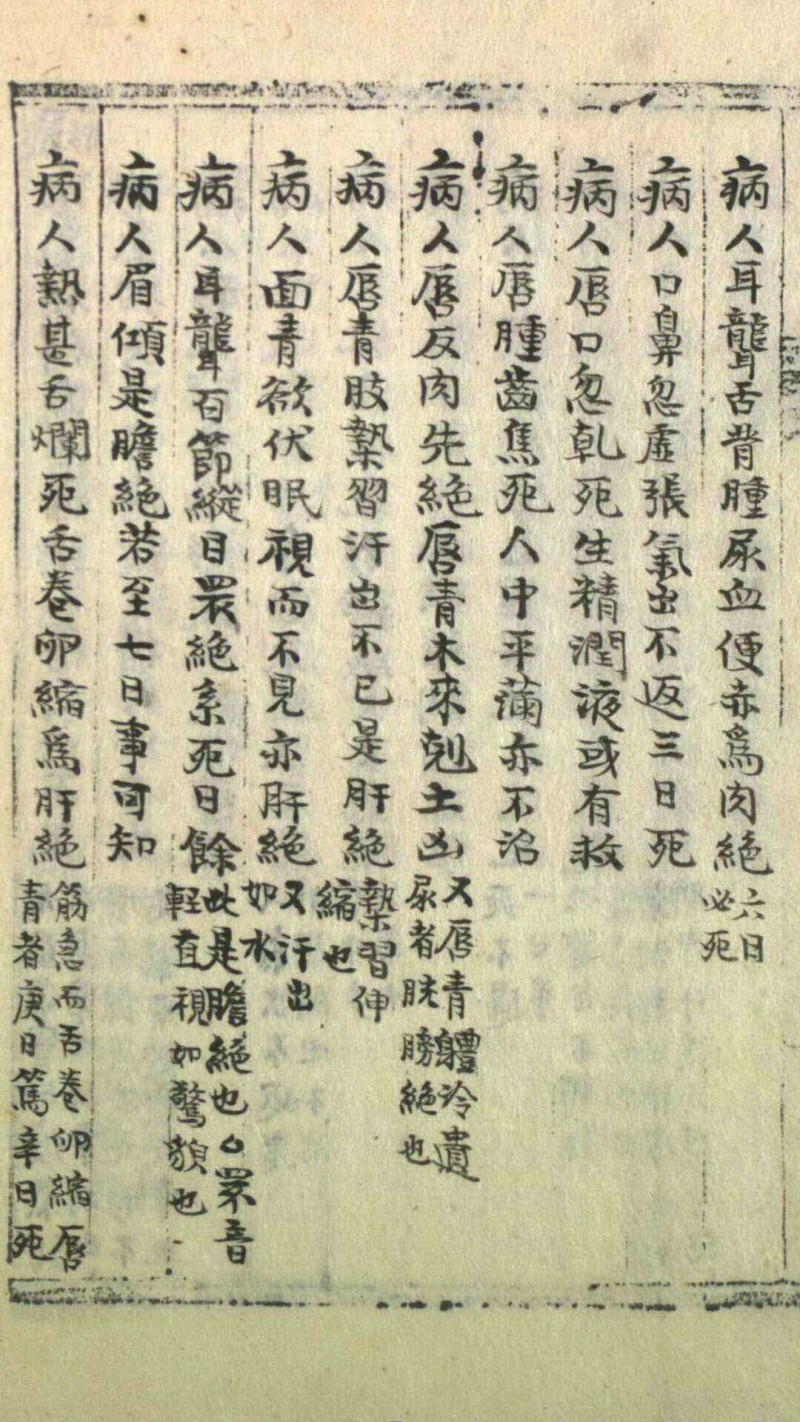 病人耳聾舌背腫尿血便赤爲肉絕六日必死
病人口鼻忽虛張氣出不返三日死
病人唇口忽乹死生精潤液或有救
病人唇腫齒焦死人中平滿亦不治
病人唇反肉先絕唇青木來剋土凶又唇青體冷遺尿者胱膀絕也
病人唇青肢漐習汗出不已是肝絕漐習伸縮也
病人面青欲伏眠視而不見亦肝絕又汗出如水
病人耳聾百節縱目睘絕系死日餘此是膽絕也睘音輕直視如驚貌也
病人眉傾是膽絕若至七日事可知
病人熱甚舌爛死舌卷卵縮爲肝絕筋急而舌卷卵縮唇青者庚日篤辛日死